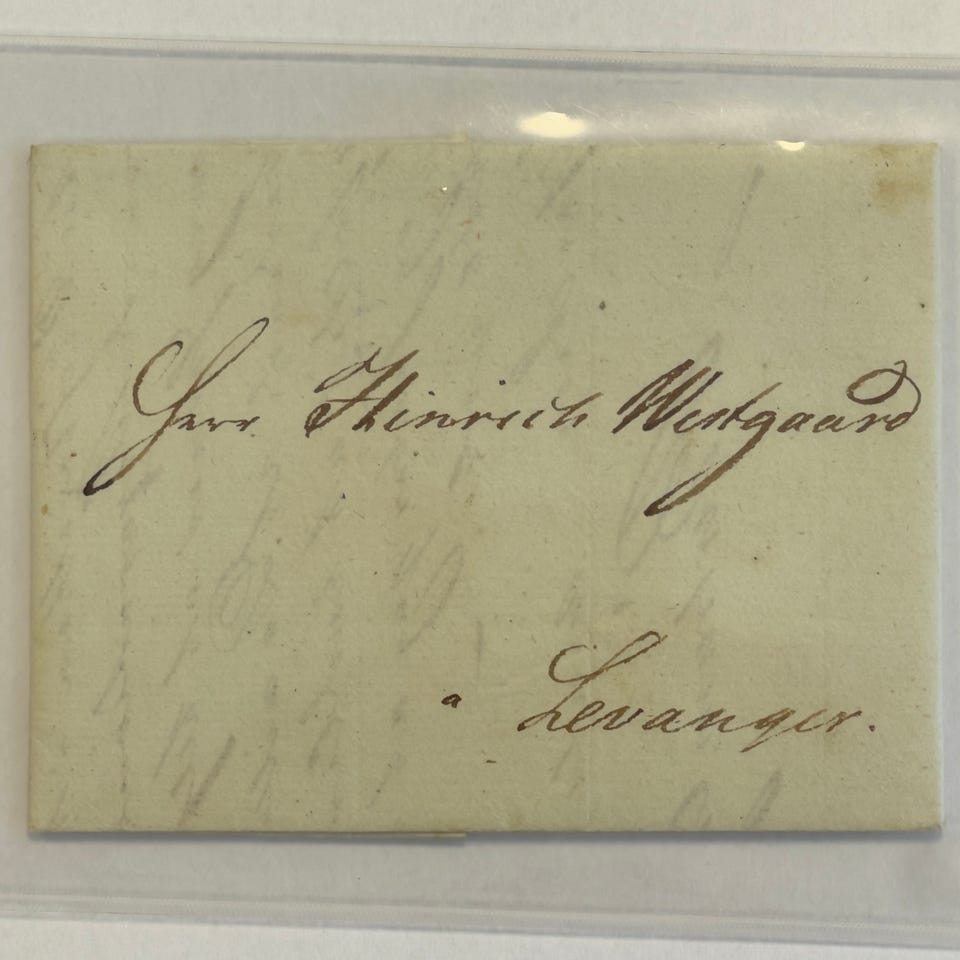 Herr Hinrich Westgaard
a Levanger.